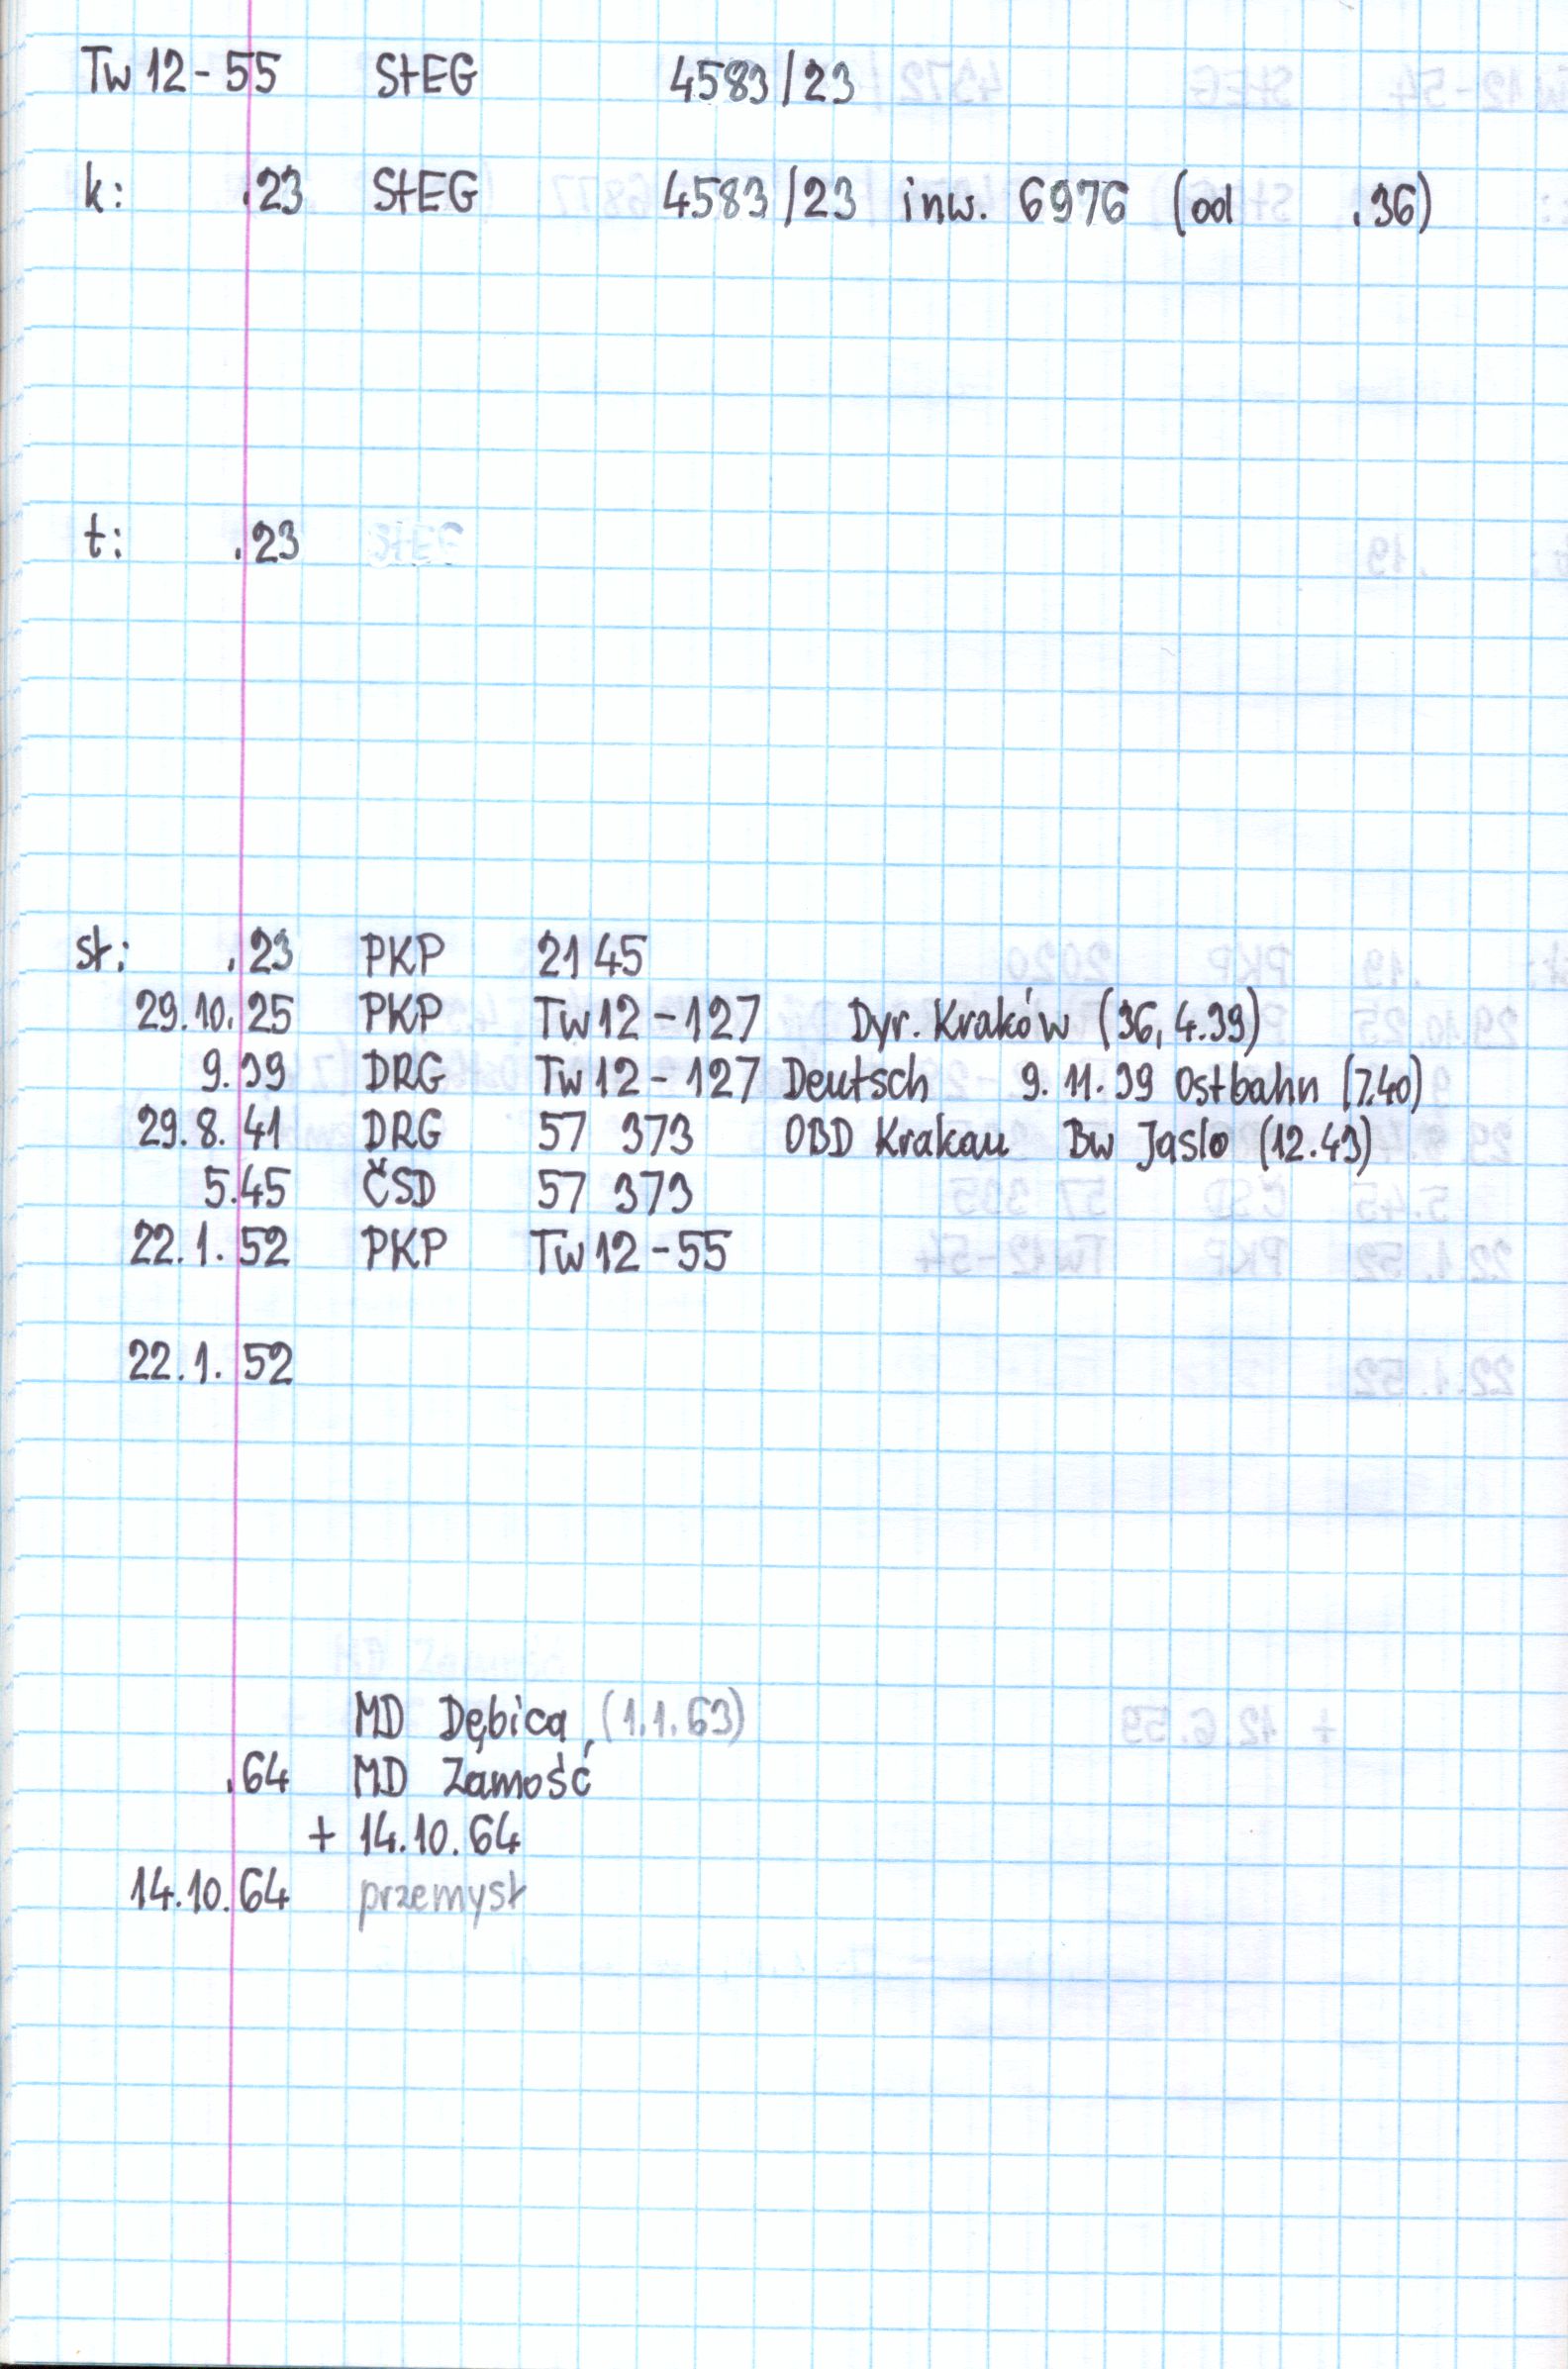 Tw 12-55 StEG 4583/23
k: .23 StEG 4583/23 inw. 6976 (od .36)
t: .23 StEG
st: .23 PKP 2145
29.10.25 PKP Tw12-127 Dyr. Kraków (36, 4.39)
9.39 DRG Tw12-127 Deutsch 9.11.39 Ostbahn (7.40)
29.8.41 DRG 57 373 OBD Krakau Bw Jaslo (12.43)
5.45 ČSD 57 373
22.1.52 PKP Tw12-55
22.1.52
MD Zamość
MD Dębica, (1.1.63)
.64 MD Zamość
+ 14.10.64
14.10.64 przemysł